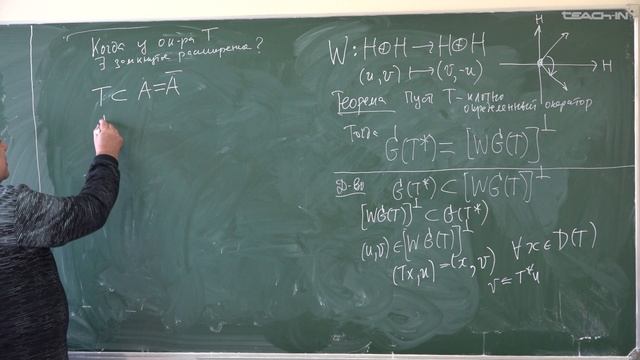 Когда у оп-ра T
∃ замкнутое расширение?
T ⊂ A = Ā
W: H⊕H → H⊕H
(u,v) ↦ (v,-u)
Теорема Пусть T - плотно
определенный оператор
Тогда G(T*) = [WG(T)]^⊥
Д-во G(T*) ⊂ [WG(T)]^⊥
[WG(T)]^⊥ ⊂ G(T*)
(u,v) ∈ [WG(T)]^⊥
(Tx,u) = (x,v) ∀x ∈ D(T)
v = T*u
H
H
TEACH-IN